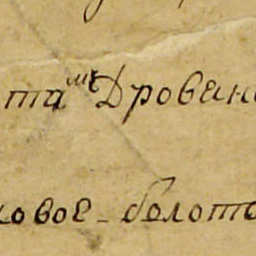 та мѣ Дрован
ковое - болото